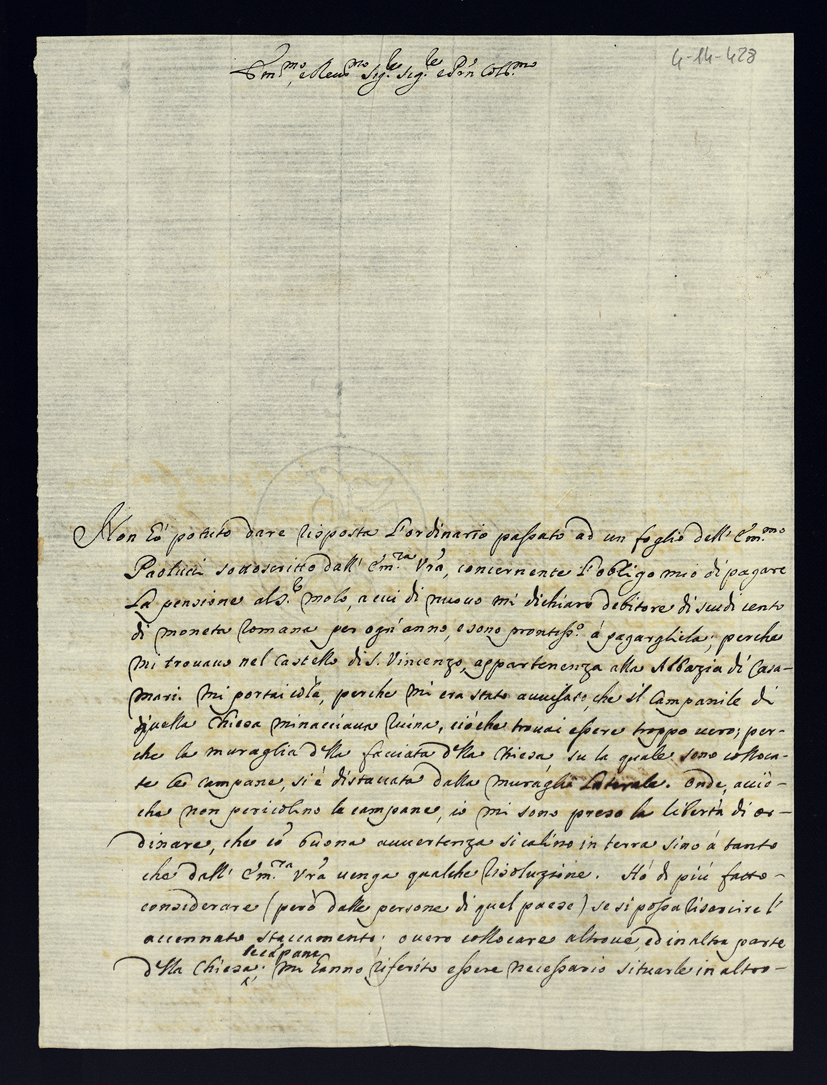 4-14-428
Em.mo, e Reu.mo Sig.re Sig.re e Prn Col.mo
Non hò potuto dare risposta l'ordinario passato ad un foglio dell' Em.mo
Paolucci sottoscritto dall' Em.za Vrã, concernente l'obligo mio di pagare
la pensione al S.r Molo, a cui di nuouo mi dichiaro debitore di scudi cento
di moneta Romana per ogn' anno, e sono prontiss.o á pagargliela; perche
mi trouauo nel Castello di S. Vincenzo, appartenenza alla Abbazia di Casa-
mari. Mi portai colà, perche mi era stato auuisato che il Campanile di
quella Chiesa minacciaua ruina, ciò che trouai essere troppo uero; per-
che la muraglia d'lla facciata d'lla Chiesa su la quale sono colloca-
te le campane, si è distaccata dalla muraglia laterale. Onde, acciò-
che non pericolino le campane, io mi sono preso la libertà di or-
dinare, che cõ buona auuertenza si calino in terra sino á tanto
che dall' Em.za Vrã uenga qualche risoluzione. Hò di più fatto
considerare (però dalle persone di quel paese) se si possa risarcire l'
accennato staccamento; ouero collocare altroue, ed in altra parte
le cãpane
d'lla Chiesa; mi hanno riferito essere necessario situarle in altro-